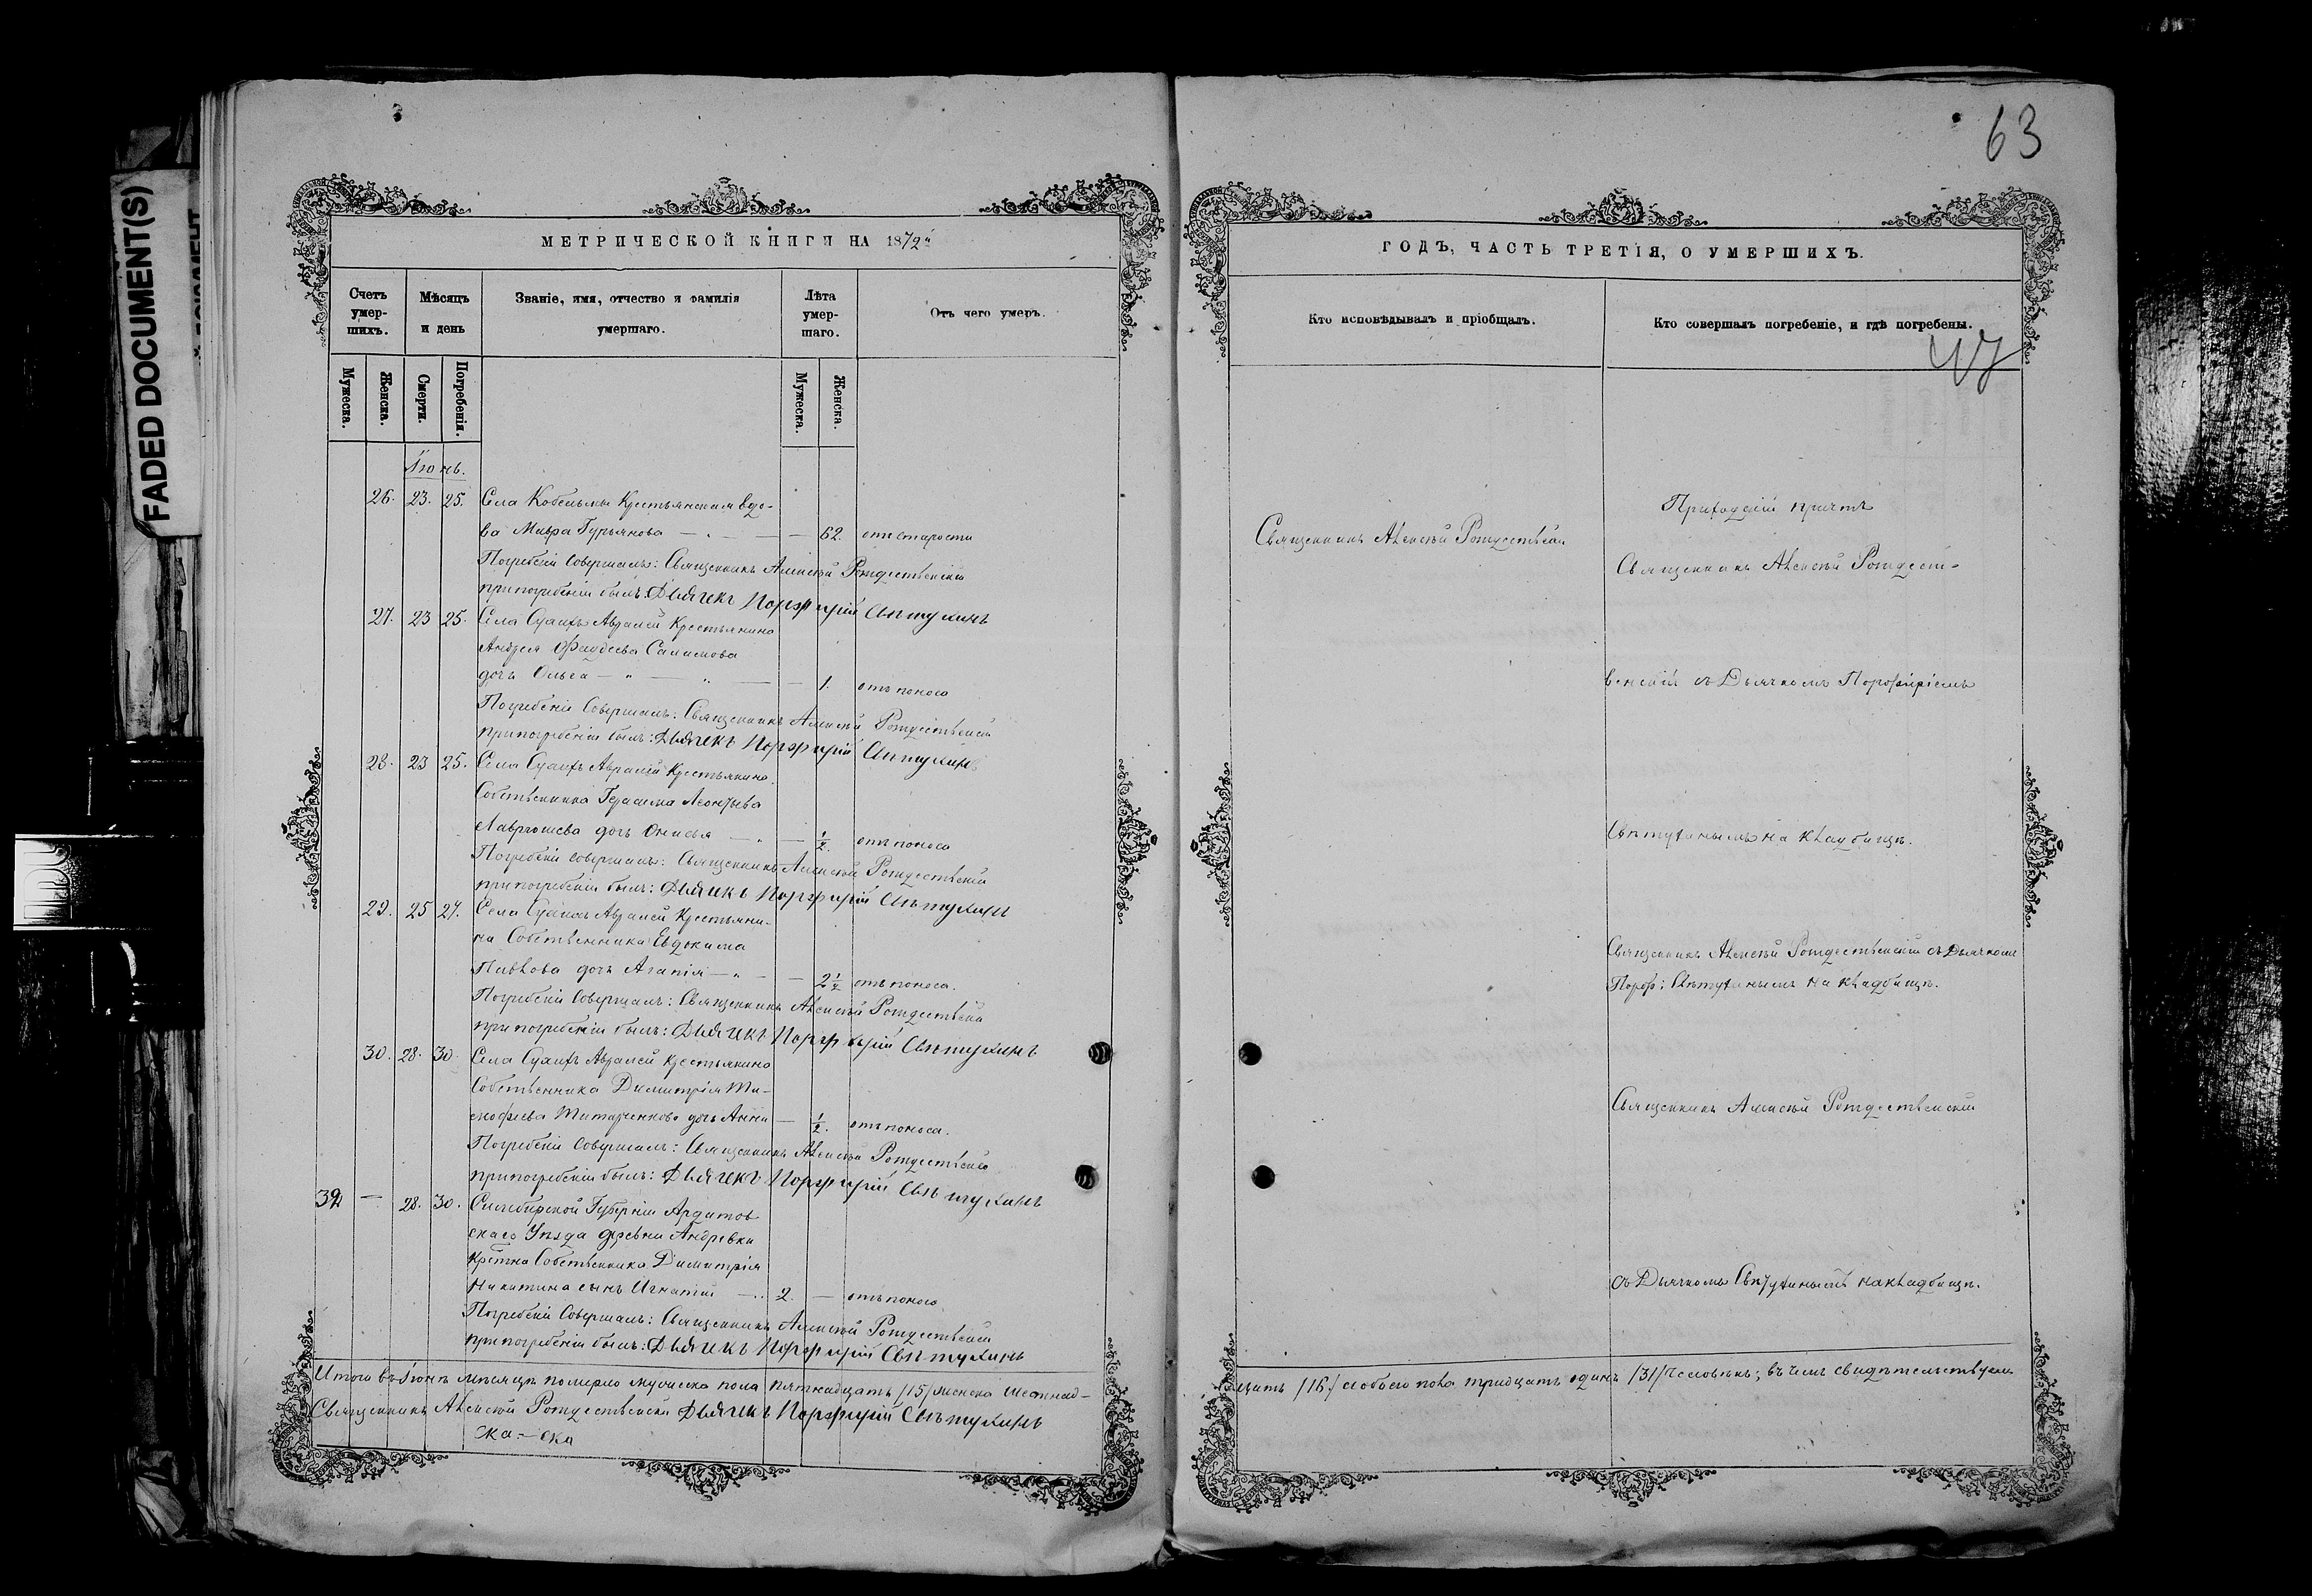 FADED DOCUMENT(S)
63
МЕТРИЧЕСКОЙ КНИГИ НА 1872й
Счетъ умер-шихъ.
Мѣсяцъ и день
Званіе, имя, отчество и фамилія умершаго.
Лѣта умер-шаго.
Отъ чего умеръ.
Мужеска.
Женска.
Смерти.
Погребенія.
Мужеска.
Женска.
Іюнь.
26. 23. 25. Села Крестьянская вдо-
ва Мавра Гурьянова — 62. отъ старости
Погребеніе совершалъ: Священникъ Алексѣй Рождественскій
при погребеніи былъ: Дьячекъ Порфирій Свѣтухинъ
27. 23 25. Села Крестьянина
Андрея Фадѣева
дочь Ольга — 1. отъ поноса
Погребеніе совершалъ: Священникъ Алексѣй Рождественскій
при погребеніи былъ: Дьячекъ Порфирій Свѣтухинъ
28. 23 25. Села Крестьянина
Собственника Герасима Леонтьева
дочь — 1/2. отъ поноса
Погребеніе совершалъ: Священникъ Алексѣй Рождественскій
при погребеніи былъ: Дьячекъ Порфирій Свѣтухинъ
29. 25 27. Села Крестьяни-
на Собственника Евдокима
Павлова дочь Агапія — 2 1/2 отъ поноса.
Погребеніе совершалъ: Священникъ Алексѣй Рождественскій
при погребеніи былъ: Дьячекъ Порфирій Свѣтухинъ
30. 28. 30. Села Крестьянина
Собственника Димитрія Ти-
мофѣева дочь Анна — 1/2. отъ поноса.
Погребеніе совершалъ: Священникъ Алексѣй Рождественскій
при погребеніи былъ: Дьячекъ Порфирій Свѣтухинъ
— 28. 30. Симбирской Губерніи Ардатов
скаго Уѣзда деревни Андревки
Собственника Димитрія
Никитина сынъ Игнатій — 2. — отъ поноса
Погребеніе совершалъ: Священникъ Алексѣй Рождественскій
при погребеніи былъ: Дьячекъ Порфирій Свѣтухинъ
Итого въ Іюнѣ мѣсяцѣ померло мужеска пола пятнадцать /15/ женска шестнад-
Священникъ Алексѣй Рождественскій Дьячекъ Порфирій Свѣтухинъ
ГОДЪ, ЧАСТЬ ТРЕТІЯ, О УМЕРШИХЪ.
Кто исповѣдывалъ и пріобщалъ.
Кто совершалъ погребеніе, и гдѣ погребены.
Приходскій причтъ
Священникъ Алексѣй Рождественскій
Священникъ Алексѣй Рождест-
венскій съ Дьячкомъ Порофиріемъ
Свѣтухинымъ на кладбищѣ.
Священникъ Алексѣй Рождественскій съ Дьячкомъ
Пороф: Свѣтухинымъ на кладбищѣ.
Священникъ Алексѣй Рождественскій
съ Дьячкомъ Свѣтухинымъ на кладбищѣ.
цать /16/ обоего пола тридцать одинъ /31/ Человѣкъ; въ чемъ свидѣтельствуемъ